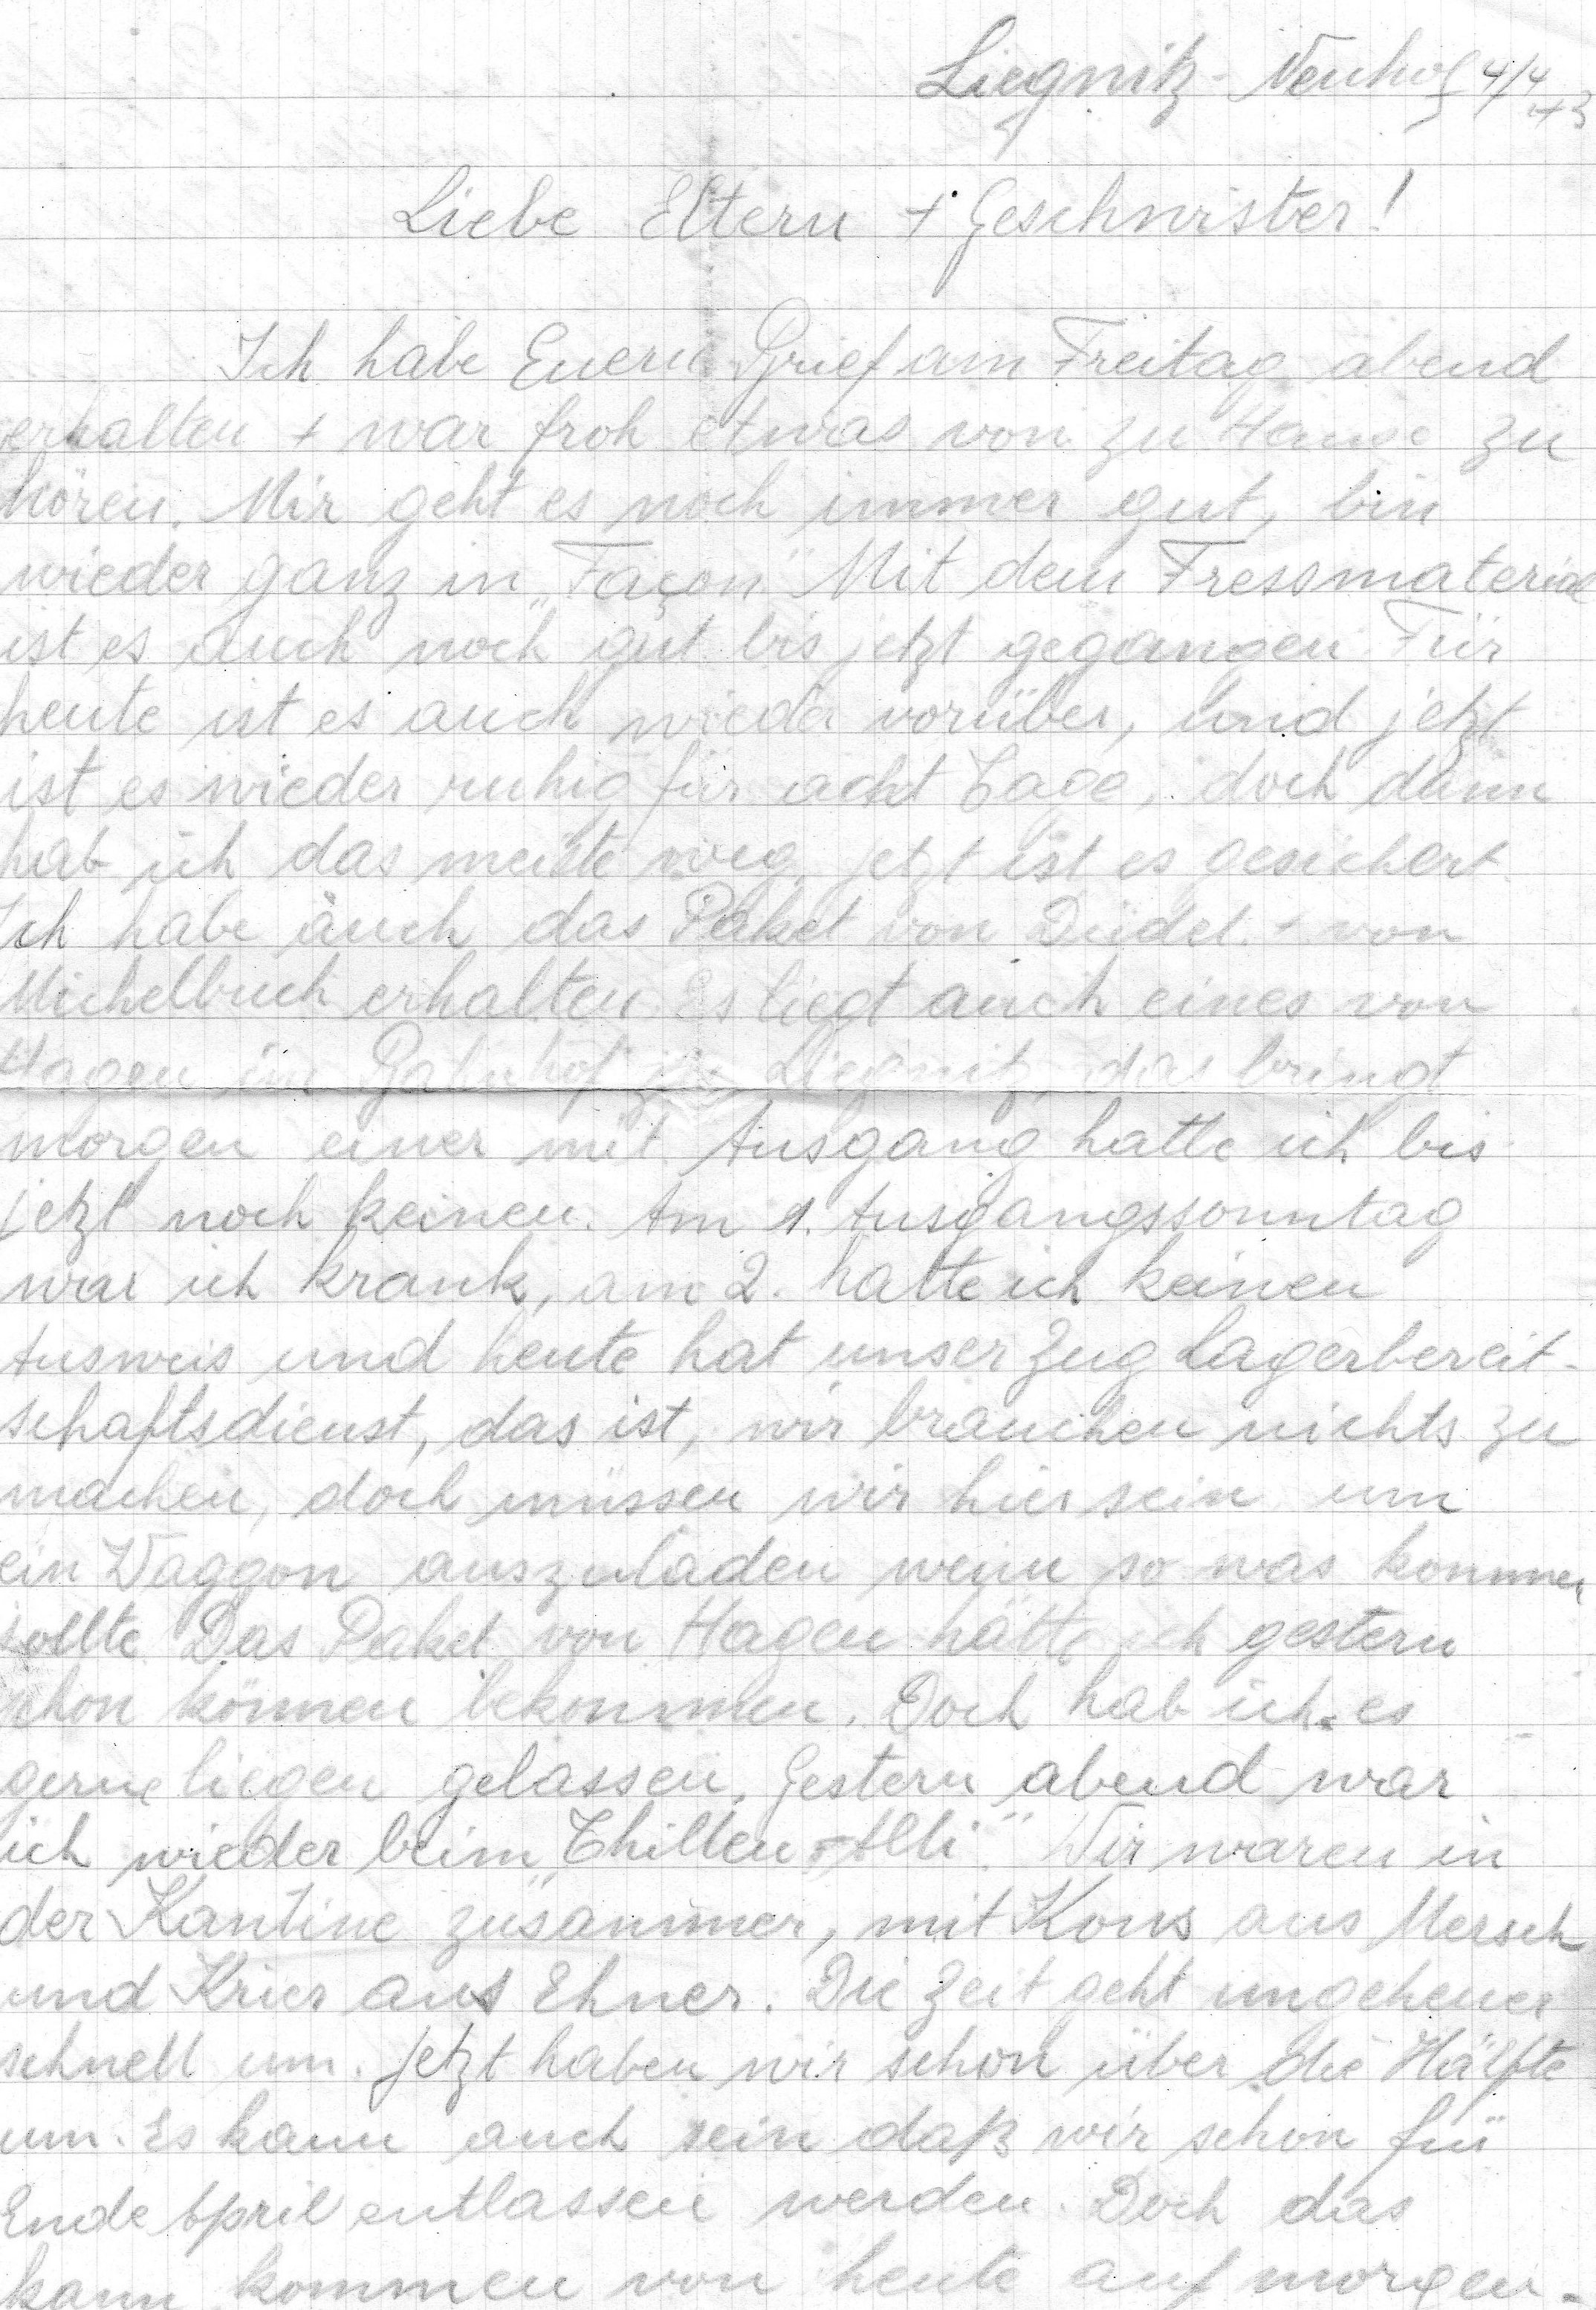 Liegnitz-Neuhof 4/4 43
Liebe Eltern + Geschwister!
Ich habe Euern Brief am Freitag abend
erhalten + war froh etwas von zu Hause zu
hören. Mir geht es noch immer gut, bin
wieder ganz in „Façon". Mit dem Fressmaterial
ist es auch noch gut bis jetzt gegangen. Für
heute ist es auch wieder vorüber, und jetzt
ist es wieder ruhig für acht Tage, doch dann
hab ich das meiste weg, jetzt ist es gesichert.
Ich habe auch das Paket von Düdel. + von
Michelbuch erhalten. Es liegt auch eines von
Hagen im Bahnhof zu Liegnitz, das bringt
morgen einer mit. Ausgang hatte ich bis
jetzt noch keinen. Am 1. Ausgangssonntag
war ich krank, am 2. hatte ich keinen
Ausweis und heute hat unser Zug Lagerbereit-
schaftsdienst, das ist, wir brauchen nichts zu
machen, doch müssen wir hier sein um
ein Waggon auszuladen wenn so was kommen
sollte. Das Paket von Hagen hätte ich gestern
schon können bekommen. Doch hab ich es
gerne liegen gelassen. Gestern abend war
ich wieder beim „Thillen-Alli". Wir waren in
der Kantine zusammen, mit Kons aus Mersch
und Krier aus Ehner. Die Zeit geht ungeheuer
schnell um. Jetzt haben wir schon über die Hälfte
um. Es kann auch sein daß wir schon für
Ende April entlassen werden. Doch das
kann kommen von heute auf morgen.